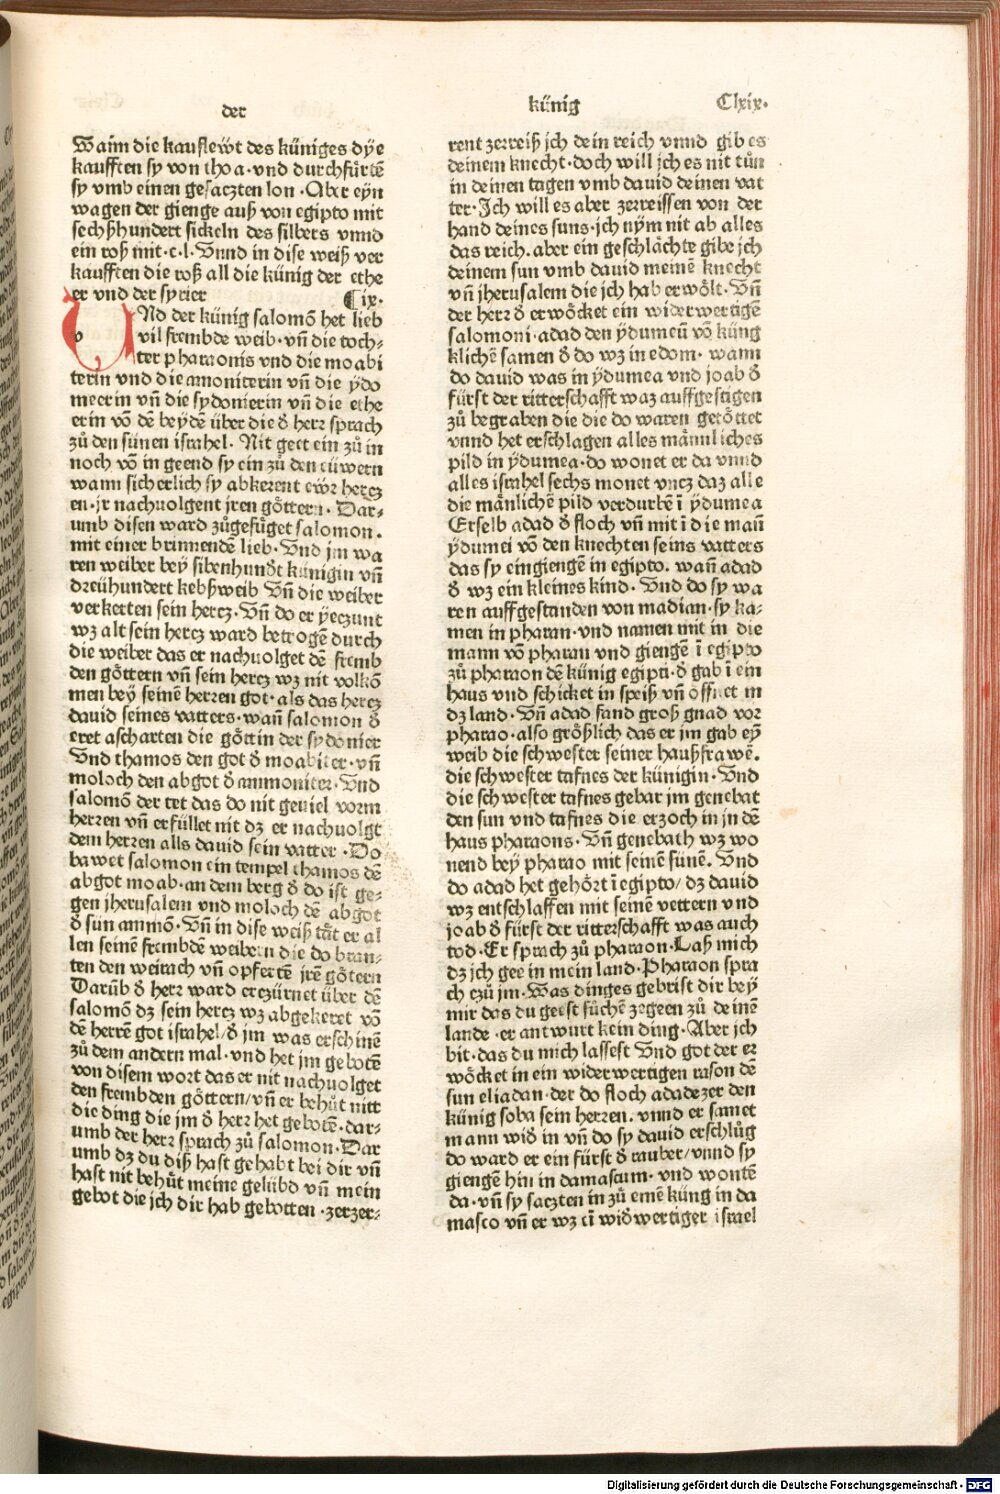 der künig Clxix·
Wann die kauflewt des küniges dye
kaufften sy von thoa·vnd durchfůrtē
sy vmb einen gesaczten lon·Aber eyn
wagen der gienge auß von egipto mit
sechßhundert sickeln des silbers vnnd
ein roß mit·c·l·Vnnd in dise weiß ver
kaufften die roß all die künig der ethe
er vnd der syrier ¶ix·
UNd der künig salomō het lieb
vil frembde weib·vn̄ die toch-
ter pharaonis vnd die moabi
terin vnd die amoniterin vn̄ die ydo
meerin vn̄ die sydonierin vn̄ die ethe
erin vō dē beydē über die d̄ herr sprach
zů den sünen israhel·Nit geet ein zů in
noch vō in geend sy ein zů den eüwern
wann sicherlich sy abkerent ewr hercz
en·ir nachuolgent jren göttern·Dar-
umb disen ward zůgefůget salomon·
mit einer brinnendē lieb·Vnd jm wa
ren weiber bey sibenhundt künigin vn̄
dreühundert kebßweib Vn̄ die weiber
verkerten sein hercz·Vn̄ do er yeczunt
wz alt sein hercz ward betrogē durch
die weiber das er nachuolget dē fremb
den göttern vn̄ sein hercz wz nit volkō
men bey seinē herren got·als das hercz
dauid seines vatters·wan̄ salomon d̄
eret ascharten die göttin der sydonier
Vnd thamos den got d̄ moabiter·vn̄
moloch den abgot d̄ ammoniter·Vnd
salomō der tet das do nit geuiel vorm
herren vn̄ erfüllet nit dz er nachuolgt
dem herren alls dauid sein vatter·Do
bawet salomon ein tempel thamos dē
abgot moab·an dem berg d̄ do ist ge-
gen jherusalem vnd moloch dē abgot
d̄ sun ammō·Vn̄ in dise weiß tät er al
len seinē frembdē weibern die do bran-
ten den weirach vn̄ opfertē jrē göttern
Darūb d̄ herr ward erczürnet über dē
salomō dz sein hercz wz abgekeret vō
dē herrē got israhel/d̄ jm was erschinē
zů dem andern mal·vnd het jm gebotē
von disem wort das er nit nachuolget
den frembden göttern/vn̄ er behůt nitt
die ding die jm d̄ herr het gebotē·dar-
umb der herr sprach zů salomon·Dar
umb dz du diß hast gehabt bei dir vn̄
hast nit behůt meine gelübd vn̄ mein
gebot die ich dir hab gebotten·zerzer-
rent zerreiß jch dein reich vnnd gib es
deinem knecht·doch will jch es nit tůn
in deinen tagen vmb dauid deinen vat
ter·Jch will es aber zerreissen von der
hand deines suns·jch nym nit ab alles
das reich·aber ein geschlächte gibe jch
deinem sun vmb dauid meinē knecht
vn̄ jherusalem die jch hab erwölt·Vn̄
der herr d̄ erwöcket ein widerwertigē
salomoni·adad den ydumeū vō küng
klichē samen d̄ do wz in edom·wann
do dauid was in ydumea vnd joab d̄
fürst der ritterschafft waz auffgestigen
zů begraben die die do waren getöttet
vnnd het erschlagen alles männliches
pild in ydumea·do wonet er da vnnd
alles israhel sechs monet vncz daz alle
die mänlichē pild verdurbē ī ydumea
Erselb adad d̄ floch vn̄ mit ī die man̄
ydumei vō den knechten seins vatters
das sy eingiengē in egipto·wan̄ adad
d̄ wz ein kleines kind·Vnd do sy wa
ren auffgestanden von madian·sy ka-
men in pharan·vnd namen mit in die
mann vō pharau vnd giengē ī egipto
zů pharaon dē künig egipti·d̄ gab ī ein
haus vnd schicket in speiß vn̄ öffnet in
dz land·Vn̄ adad fand groß gnad vor
pharao·also größlich das er jm gab ey̅
weib die schwester seiner haußfrawē·
die schwester tafnes der künigin·Vnd
die schwester tafnes gebar jm genebat
den sun vnd tafnes die erzoch in jn dē
haus pharaons·Vn̄ genebath wz wo
nend bey pharao mit seinē sünē·Vnd
do adad het gehört ī egipto/dz dauid
wz entschlaffen mit seinē vettern vnd
joab d̄ fürst der ritterschafft was auch
tod·Er sprach zů pharaon·Laß mich
dz jch gee in mein land·Pharaon spra
ch czů jm·Was dinges gebrist dir bey
mir das du geest sůchē zegeen zů deinē
lande·er antwurt kein ding·Aber jch
bit·das du mich lassest Vnd got der er
wöcket in ein widerwertigen rason dē
sun eliadan·der do floch adadezer den
künig soba sein herren·vnnd er samet
mann wid̄ in vn̄ do sy dauid erschlůg
do ward er ein fürst d̄ rauber/vnnd sy
giengē hin in damascum·vnd wontē
da·vn̄ sy saczten in zů einē küng in da
masco vn̄ er wz eī wid̄wertiger israel
Digitalisierung gefördert durch die Deutsche Forschungsgemeinschaft · DFG